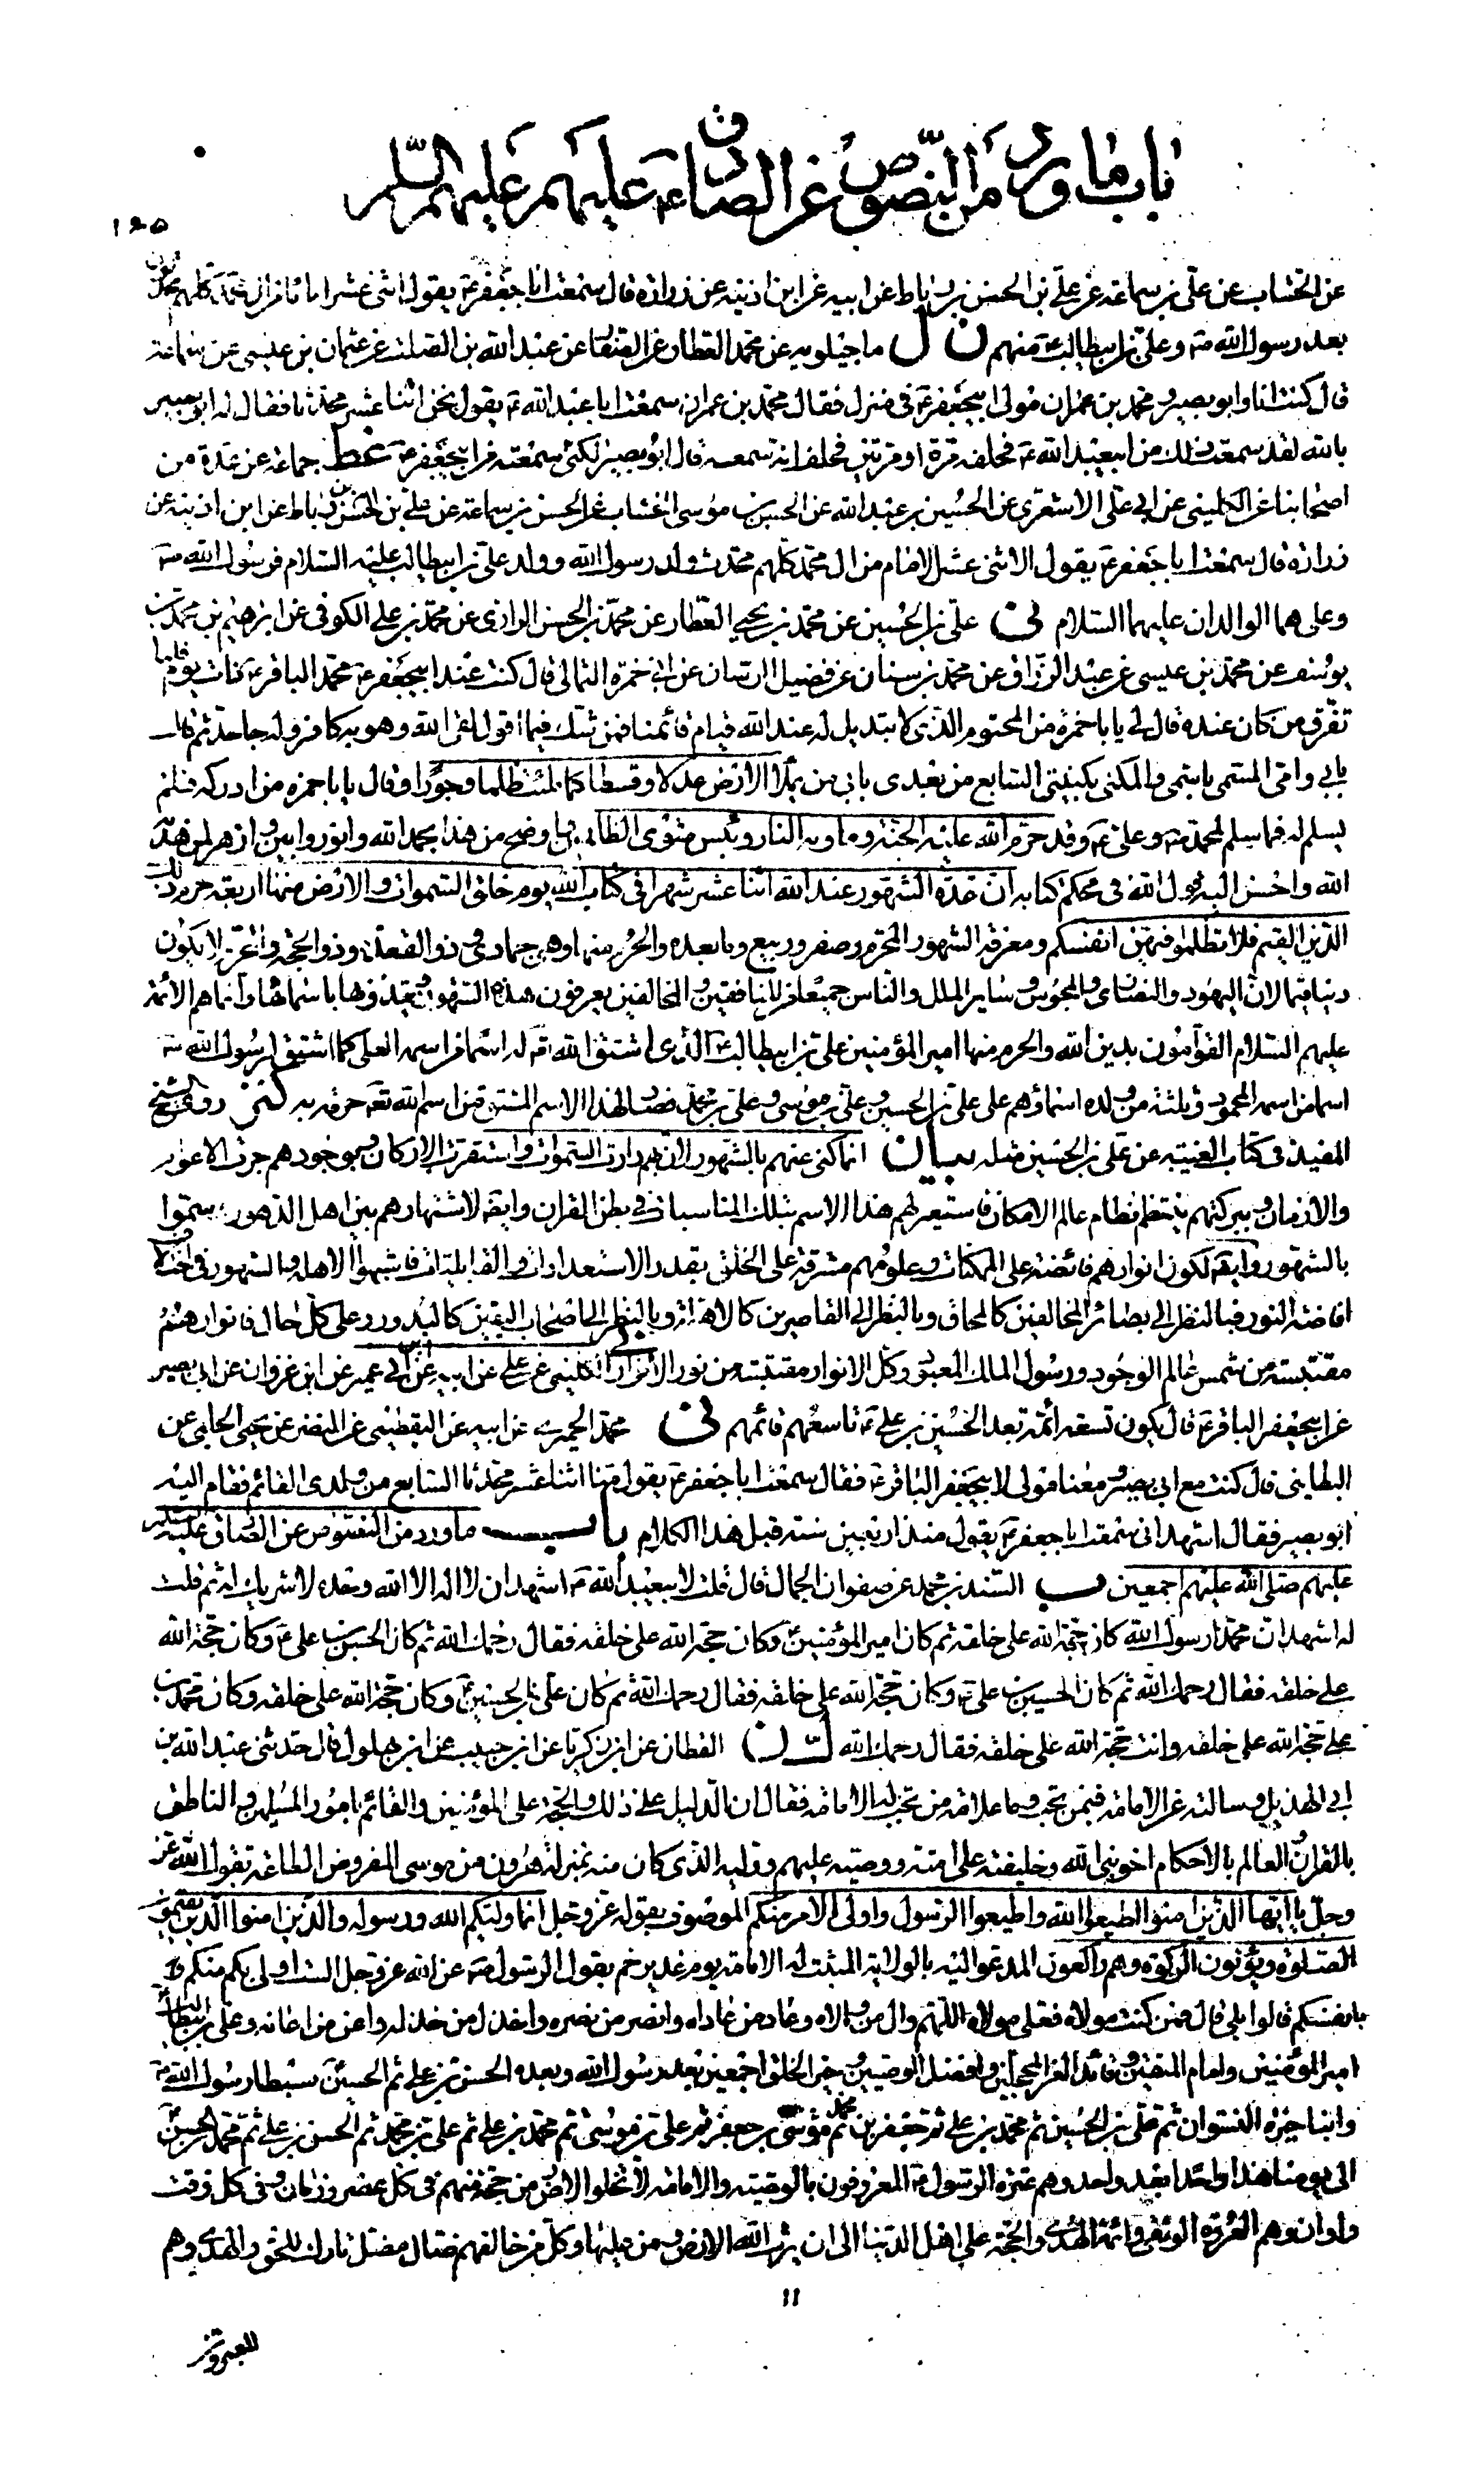 باب ما ورد من النصوص عن الصادق عليهم عليهم السلام
١٦٥
عن الخشاب عن علي بن سماعة عن علي بن الحسن بن رباط عن ابيه عن ابن اذينه عن زرارة قال سمعت ابا جعفر ع يقول اثنى عشر اماما من ال محمد كلهم محدثون
بعد رسول الله ص وعلي بن ابيطالب ع منهم ن ل ماجيلويه عن محمد العطار عن الصفار عن عبد الله بن الصلت عن عثمان بن عيسى عن سماعة
قال كنت انا وابو بصير ومحمد بن عمران مولى ابيجعفر ع في منزل فقال محمد بن عمران سمعت ابا عبد الله ع يقول نحن اثنا عشر محدثا فقال له ابو بصير
بالله لقد سمعت ذلك من ابيعبد الله ع فحلفه مرة او مرتين فحلف انه سمعه قال ابو بصير لكني سمعته من ابيجعفر ع غط جماعة عن عدة من
اصحابنا عن الكليني عن ابي علي الاشعري عن الحسين بن عبد الله عن الحسن بن موسى الخشاب عن الحسن بن سماعة عن علي بن الحسن بن رباط عن ابن اذينه عن
زرارة قال سمعت ابا جعفر ع يقول الاثنى عشر الامام من ال محمد كلهم محدث ولد رسول الله وولد علي بن ابيطالب عليه السلام فرسول الله ص
وعلي هما الوالدان عليهما السلام نى علي بن الحسين عن محمد بن يحيى العطار عن محمد بن الحسن الرازي عن محمد بن علي الكوفي عن ابرهيم بن محمد بن
يوسف عن محمد بن عيسى عن عبد الرزاق عن محمد بن سنان عن فضيل الرسان عن ابي حمزة الثمالي قال كنت عند ابيجعفر ع محمد الباقر ع ذات يوم فلما
تفرق من كان عنده قال لي يا با حمزة من المحتوم الذي لا تبديل له عند الله قيام قائمنا فمن شك فيما اقول لقى الله وهو به كافر وله جاحد ثم قال
بابي وامي المسمى باسمي والمكنى بكنيتي السابع من بعدي بابي من يملأ الارض عدلا وقسطا كما ملئت ظلما وجورا وقال يا با حمزه من ادركه فلم
يسلم له فما سلم لمحمد ص وعلي ع وقد حرم الله عليه الجنة وماويه النار وبئس مثوى الظالمين واوضح من هذا بحمد الله وانور وابين وازهر لمن هداه
الله واحسن اليه قول الله في محكم كتابه ان عدة الشهور عند الله اثنا عشر شهرا في كتاب الله يوم خلق السموات والارض منها اربعة حرم ذلك
الدين القيم فلا تظلموا فيهن انفسكم ومعرفة الشهور المحرم وصفر وربيع وما بعده والحرم منها وهي جمادى وذو القعدة وذو الحجة والمحرم لا يكون
دينا قيما لان اليهود والنصارى والمجوس وساير الملل والناس جميعا من المنافقين والمخالفين يعرفون هذه الشهور ويعدونها باسمائها وانما هم الائمة
عليهم السلام القوامون بدين الله والحرم منها امير المؤمنين علي بن ابيطالب ع الذي اشتق الله تع له اسما من اسمه العلي كما اشتق لرسول الله ص
اسما من اسمه المحمود وثلثة من ولده اسماؤهم علي علي بن الحسين وعلي بن موسى وعلي بن محمد فصار لهذا الاسم المشتق من اسم الله تع حرمة به كنز روى الشيخ
المفيد في كتاب الغيبة عن علي بن الحسين مثله بيان انما كنى عنهم بالشهور لان بهم دارت السموات واستقرت الاركان وبوجودهم جرت الاعوام
والازمان وببركتهم ينتظم نظام عالم الامكان فاستعير لهم هذا الاسم بتلك المناسبات في بطن القران وايضا لاشتهارهم بين اهل الدهور سموا
بالشهور وايضا لكون انوارهم فائضة على الممكنات وعلومهم مشرقة على الخلق بقدر الاستعدادات والقابليات فاشبهوا الاهلة والشهور في اختلاف
افاضة النور فبالنظر الى بصائر المخالفين كالمحاق وبالنظر الى القاصرين كالاهلة وبالنظر الى اصحاب اليقين كالبدور وعلى كل حال فانوارهم
مقتبسة من شمس عالم الوجود ورسول الملك المعبود وكل الانوار مقتبسة من نور الانوار الكليني عن علي عن ابيه عن ابن ابي عمير عن ابن غزوان عن ابي بصير
عن ابيجعفر الباقر ع قال يكون تسعة ائمة بعد الحسين بن علي ع تاسعهم قائمهم نى محمد الحميري عن ابيه عن اليقطيني عن النضر عن يحيى الحلبي عن
البطايني قال كنت مع ابي بصير ومعنا مولى لابيجعفر الباقر ع فقال سمعت ابا جعفر ع يقول منا اثنا عشر محدثا السابع من ولدي القائم فقام اليه
ابو بصير فقال اشهد اني سمعت ابا جعفر ع يقول منذ اربعين سنة قبل هذا الكلام باب ما ورد من النصوص عن الصادق عليه السلام
عليهم صلى الله عليهم اجمعين ب السندي بن محمد عن صفوان الجمال قال قلت لابيعبد الله ع اشهد ان لا اله الا الله وحده لا شريك له ثم قلت
له اشهد ان محمدا رسول الله كان حجة الله على خلقه ثم كان امير المؤمنين ع وكان حجة الله على خلقه فقال رحمك الله ثم كان الحسن بن علي ع وكان حجة الله
على خلقه فقال رحمك الله ثم كان الحسين بن علي ع وكان حجة الله على خلقه فقال رحمك الله ثم كان علي بن الحسين ع وكان حجة الله على خلقه وكان محمد بن
علي حجة الله على خلقه وانت حجة الله على خلقه فقال رحمك الله ل ن القطان عن ابن زكريا عن ابن حبيب عن ابن بهلول قال حدثني عبد الله بن
ابي الهذيل وسالته عن الامامة فيمن تجب وما علامة من تجب له الامامة فقال ان الدليل على ذلك والحجة على المؤمنين والقائم بامور المسلمين والناطق
بالقران والعالم بالاحكام اخو نبي الله وخليفته على امته ووصيه عليهم ووليه الذي كان منه بمنزلة هرون من موسى المفروض الطاعة بقول الله عز
وجل يا ايها الذين امنوا اطيعوا الله واطيعوا الرسول واولى الامر منكم الموصوف بقوله عز وجل انما وليكم الله ورسوله والذين امنوا الذين يقيمون
الصلوة ويؤتون الزكوة وهم راكعون المدعو اليه بالولاية المثبت له الامامة يوم غدير خم بقول الرسول ص عن الله عز وجل الست اولى بكم منكم
بانفسكم قالوا بلى قال فمن كنت مولاه فعلي مولاه اللهم وال من والاه وعاد من عاداه وانصر من نصره واخذل من خذله واعن من اعانه وعلي بن ابيطالب
امير المؤمنين وامام المتقين وقائد الغر المحجلين وافضل الوصيين وخير الخلق اجمعين بعد رسول الله وبعده الحسن بن علي ثم الحسين سبطا رسول الله ص
وابنا خيرة النسوان ثم علي بن الحسين ثم محمد بن علي ثم جعفر بن محمد ثم موسى بن جعفر ثم علي بن موسى ثم محمد بن علي ثم علي بن محمد ثم الحسن بن علي ثم محمد بن الحسن
الى يومنا هذا واحدا بعد واحد وهم عترة الرسول ع المعروفون بالوصية والامامة لا تخلوا الارض من حجة منهم في كل عصر وزمان وفي كل وقت
واوان وهم العروة الوثقى وائمة الهدى والحجة على اهل الدنيا الى ان يرث الله الارض ومن عليها وكل من خالفهم ضال مضل تارك للحق والهدى وهم
١١
المعبرون